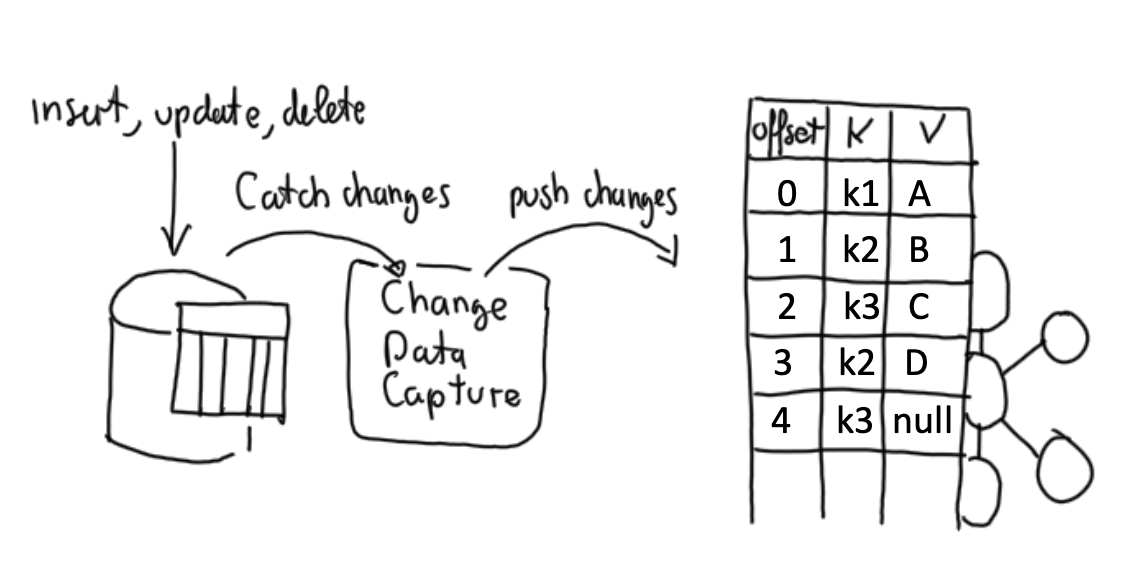 insert, update, delete
Catch changes
push changes
Change
Data
Capture
offset K V
0 k1 A
1 k2 B
2 k3 C
3 k2 D
4 k3 null